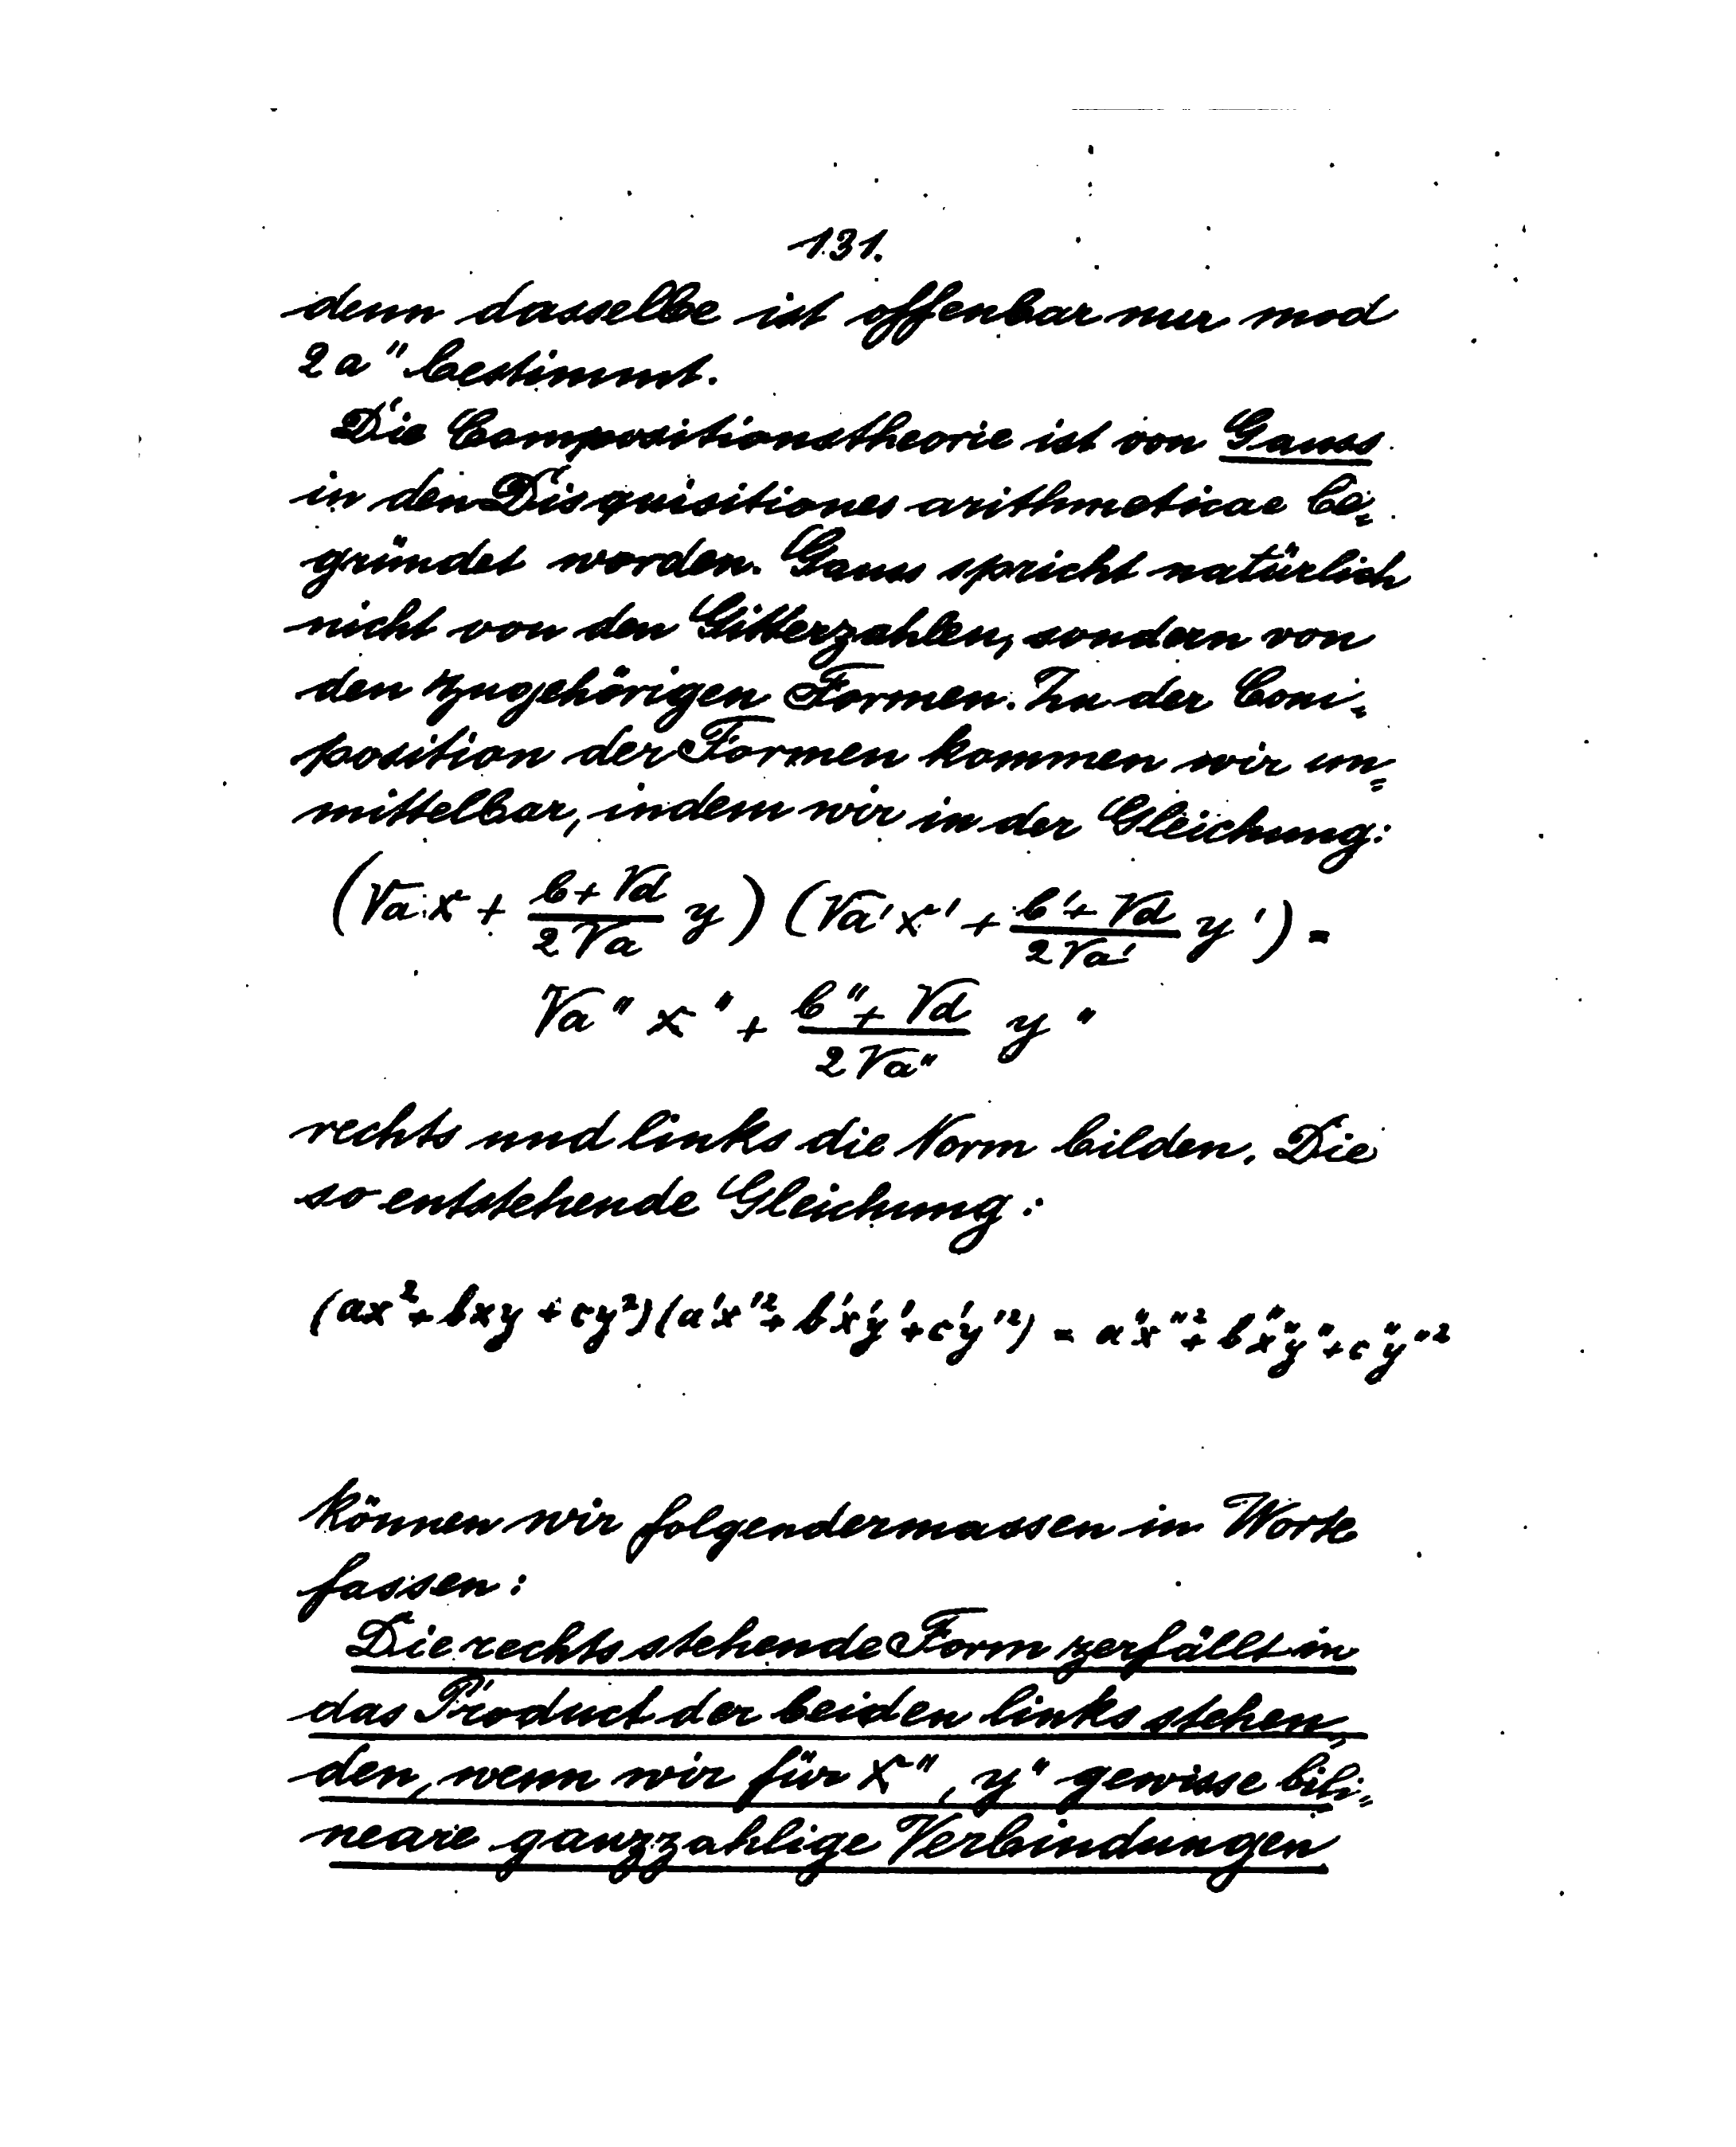 131.
denn dasselbe ist offenbar nur mod
2a" bestimmt.
Die Compositionstheorie ist von Gauss
in den Disquisitiones arithmeticae be=
gründet worden. Gauss spricht natürlich
nicht von den Gitterzahlen, sondern von
den zugehörigen Formen. Zu der Com=
position der Formen kommen wir un=
mittelbar, indem wir in der Gleichung:
(√a x + (b+√d)/(2√a) y) (√a' x' + (b'+√d)/(2√a') y') =
√a" x" + (b"+√d)/(2√a") y"
rechts und links die Norm bilden. Die
so entstehende Gleichung:
(ax²+bxy+cy²)(a'x'²+b'x'y'+c'y'²) = a"x"²+b"x"y"+c"y"²
können wir folgendermassen in Worte
fassen:
Die rechts stehende Form zerfällt in
das Product der beiden links stehen=
den, wenn wir für x", y" gewisse bili=
neare ganzzahlige Verbindungen